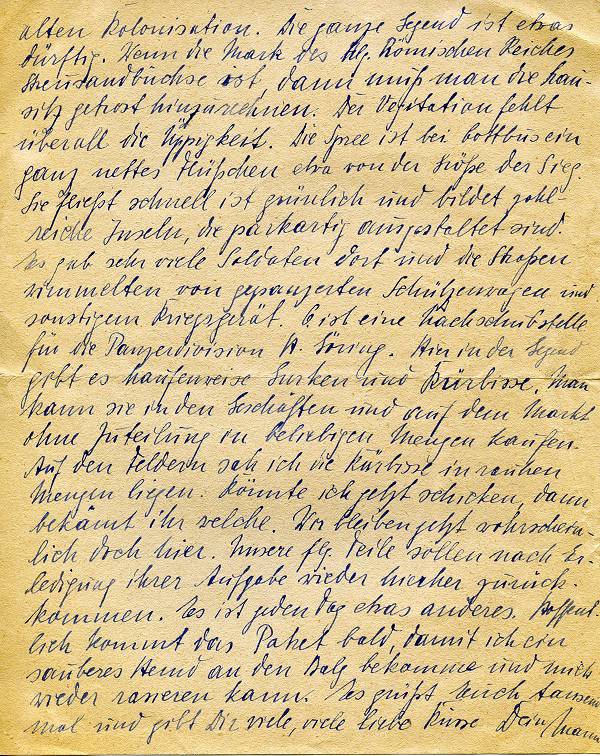 alten Kolonisation. Die ganze Gegend ist etwas
dürftig. Wenn die Mark des hlg. Römischen Reiches
Streusandbüchse ist, dann muß man die Lau-
sitz getrost hinzurechnen. Der Vegitation fehlt
überall die Üppigkeit. Die Spree ist bei Cottbus ein
ganz nettes Flüßchen etwa von der Größe der Sieg.
Sie fließt schnell ist grünlich und bildet zahl-
reiche Inseln, die parkartig ausgestaltet sind.
Es gab sehr viele Soldaten dort und die Straßen
wimmelten von gepanzerten Schützenwagen und
sonstigem Kriegsgerät. Es ist eine Nachschubstelle
für die Panzerdivision H. Göring. Hier in der Gegend
gibt es haufenweise Gurken und Kürbisse. Man
kann sie in den Geschäften und auf dem Markt
ohne Zuteilung in beliebigen Mengen kaufen.
Auf den Feldern sah ich die Kürbisse in rauhen
Mengen liegen. Könnte ich jetzt schicken, dann
bekämt ihr welche. Wir bleiben jetzt wahrschein-
lich doch hier. Unsere flg. Teile sollen nach Er-
ledigung ihrer Aufgabe wieder hierher zurück-
kommen. Es ist jeden Tag etwas anderes. Hoffent-
lich kommt das Paket bald, damit ich ein
sauberes Hemd an den Balg bekomme und mich
wieder rasieren kann. Es grüßt Euch tausend
mal und gibt Dir viele, viele liebe Küsse Dein Mann